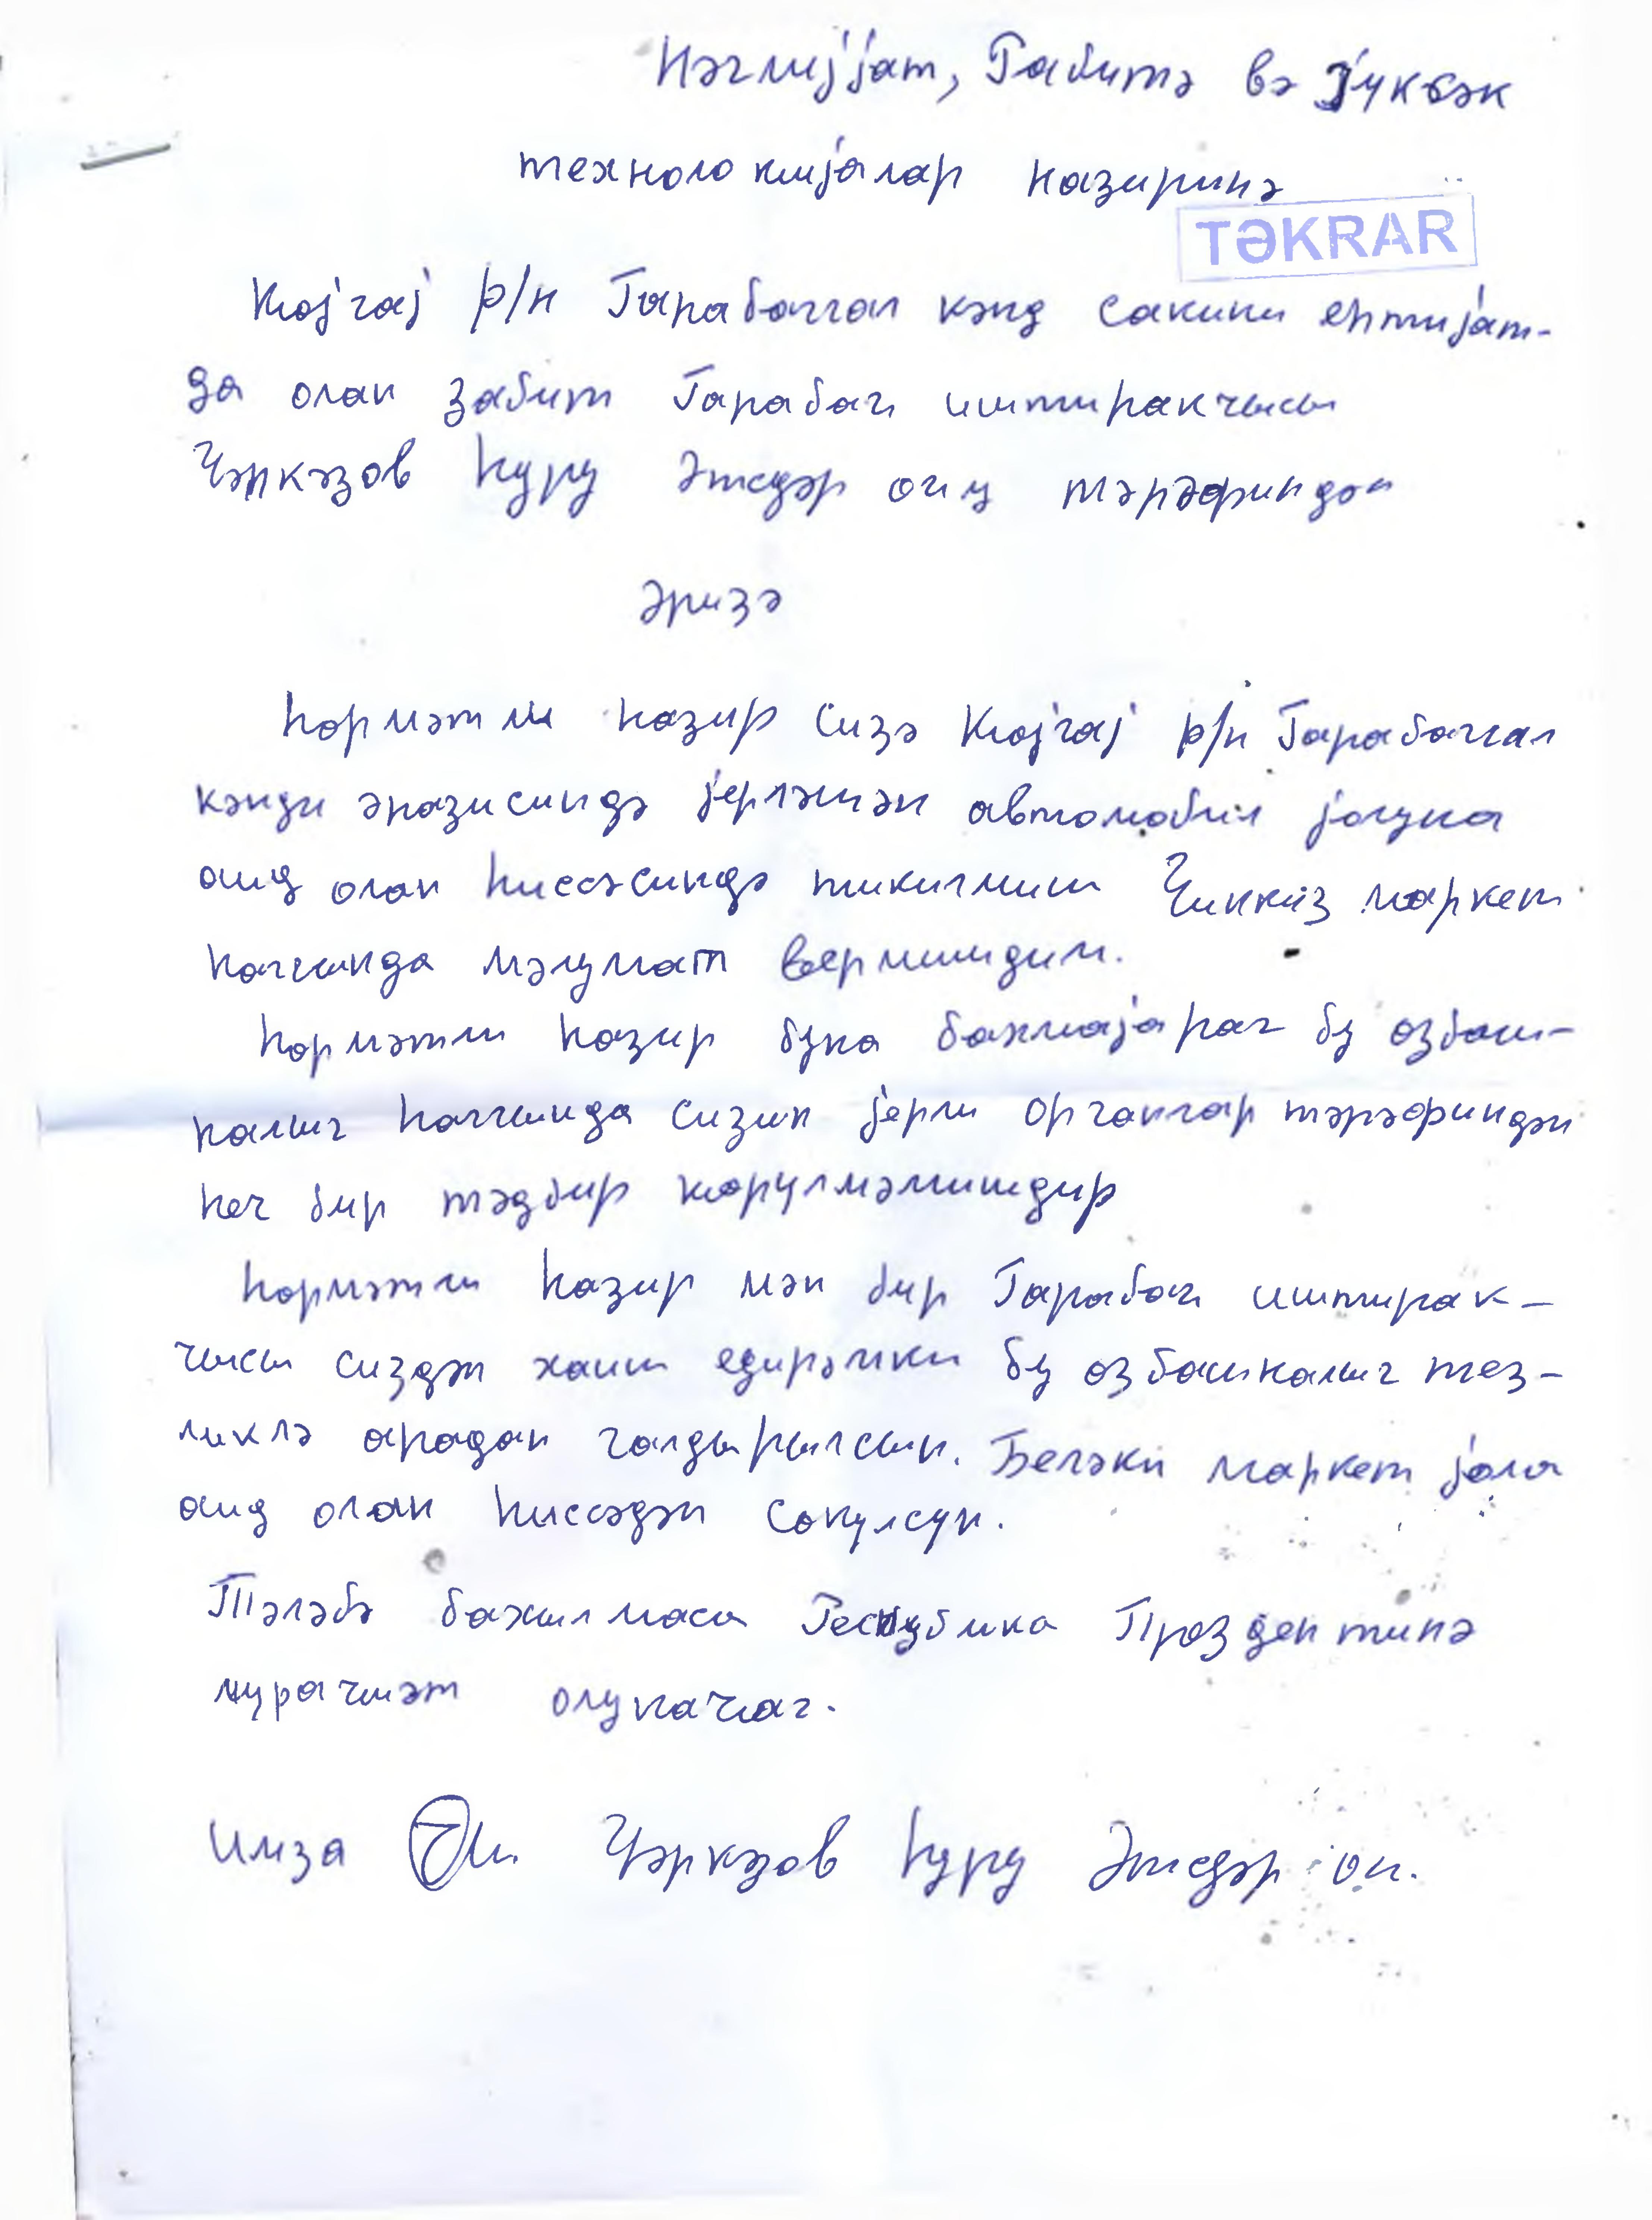 Нəглијјат, Рабитə вə Јуксəк
технолокијалар назиринə
TƏKRAR
Көјчај р/н Гарабаггал кəнд сакини ентијат-
да олан забит Гарабағ иштиракчысы
Чəркəзов Нуру Əждəр оғлу тəрəфиндəн
Əризə
Һөрмəтли назир Сизə Көјчај р/н Гарабаггал
кəнди əразисиндə јерлəшəн автомобил јолуна
аид олан һиссəсиндə тикилмиш Чинкиз маркет
һаггында мəлумат вермишдим.
Һөрмəтли назир буна бахмајараг бу өзбаш-
налыг һаггында Сизин јерли органлар тəрəфиндəн
һеч бир тəдбир көрүлмəмишдир
Һөрмəтли назир мəн бир Гарабағ иштирак-
чысы сиздəн хаиш едирəмки бу өзбашналыг тез-
ликлə арадан галдырылсын. Белəки маркет јола
аид олан һиссəдəн сөкүлсүн.
Тəлəбə бахылмаса Республика Прездентинə
мурачиəт олуначаг.
Имза Чəркəзов Нуру Əждəр оғ.